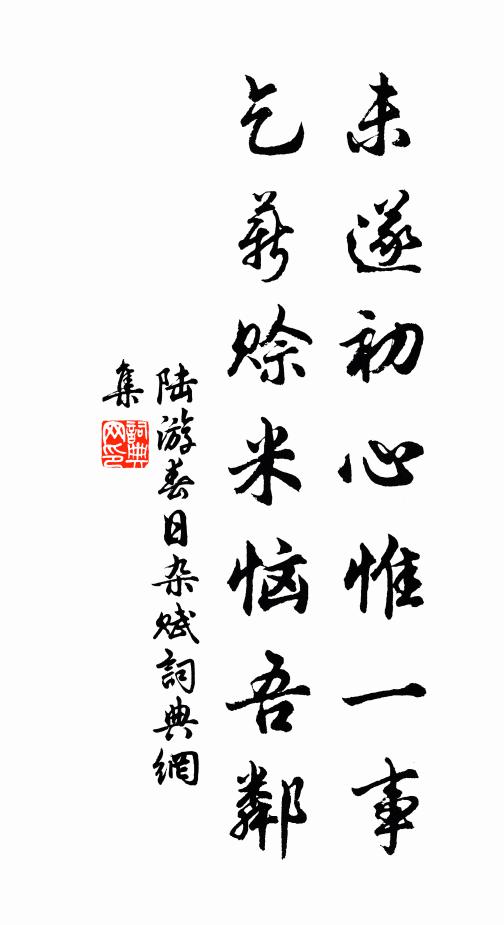 未遂初心惟一事
乞薪赊米恼吾鄰
陆游春日杂赋詞典網
集
詞典网印